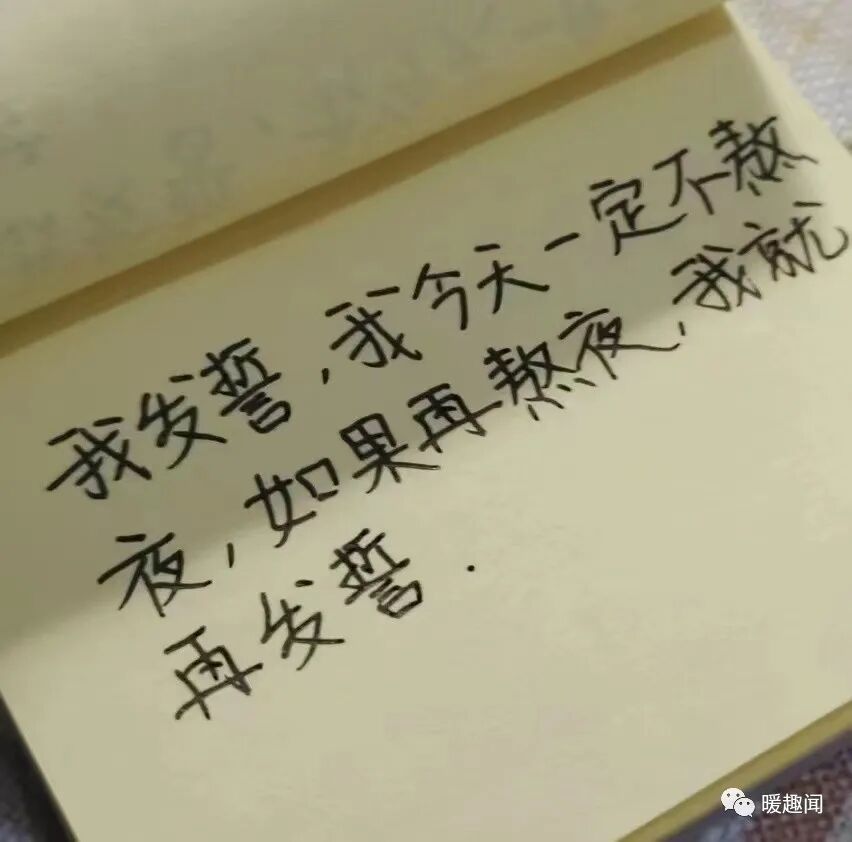 我发誓,我今天一定不熬
夜,如果再熬夜,我就
再发誓.
暖趣闻